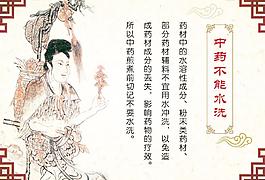 中药不能水洗
药材中的水溶性成分、粉末类药材、
部分药材辅料不宜用水冲洗，以免造
成药材成分的丢失，影响药物的疗效。
所以中药煎煮前切记不要水洗。